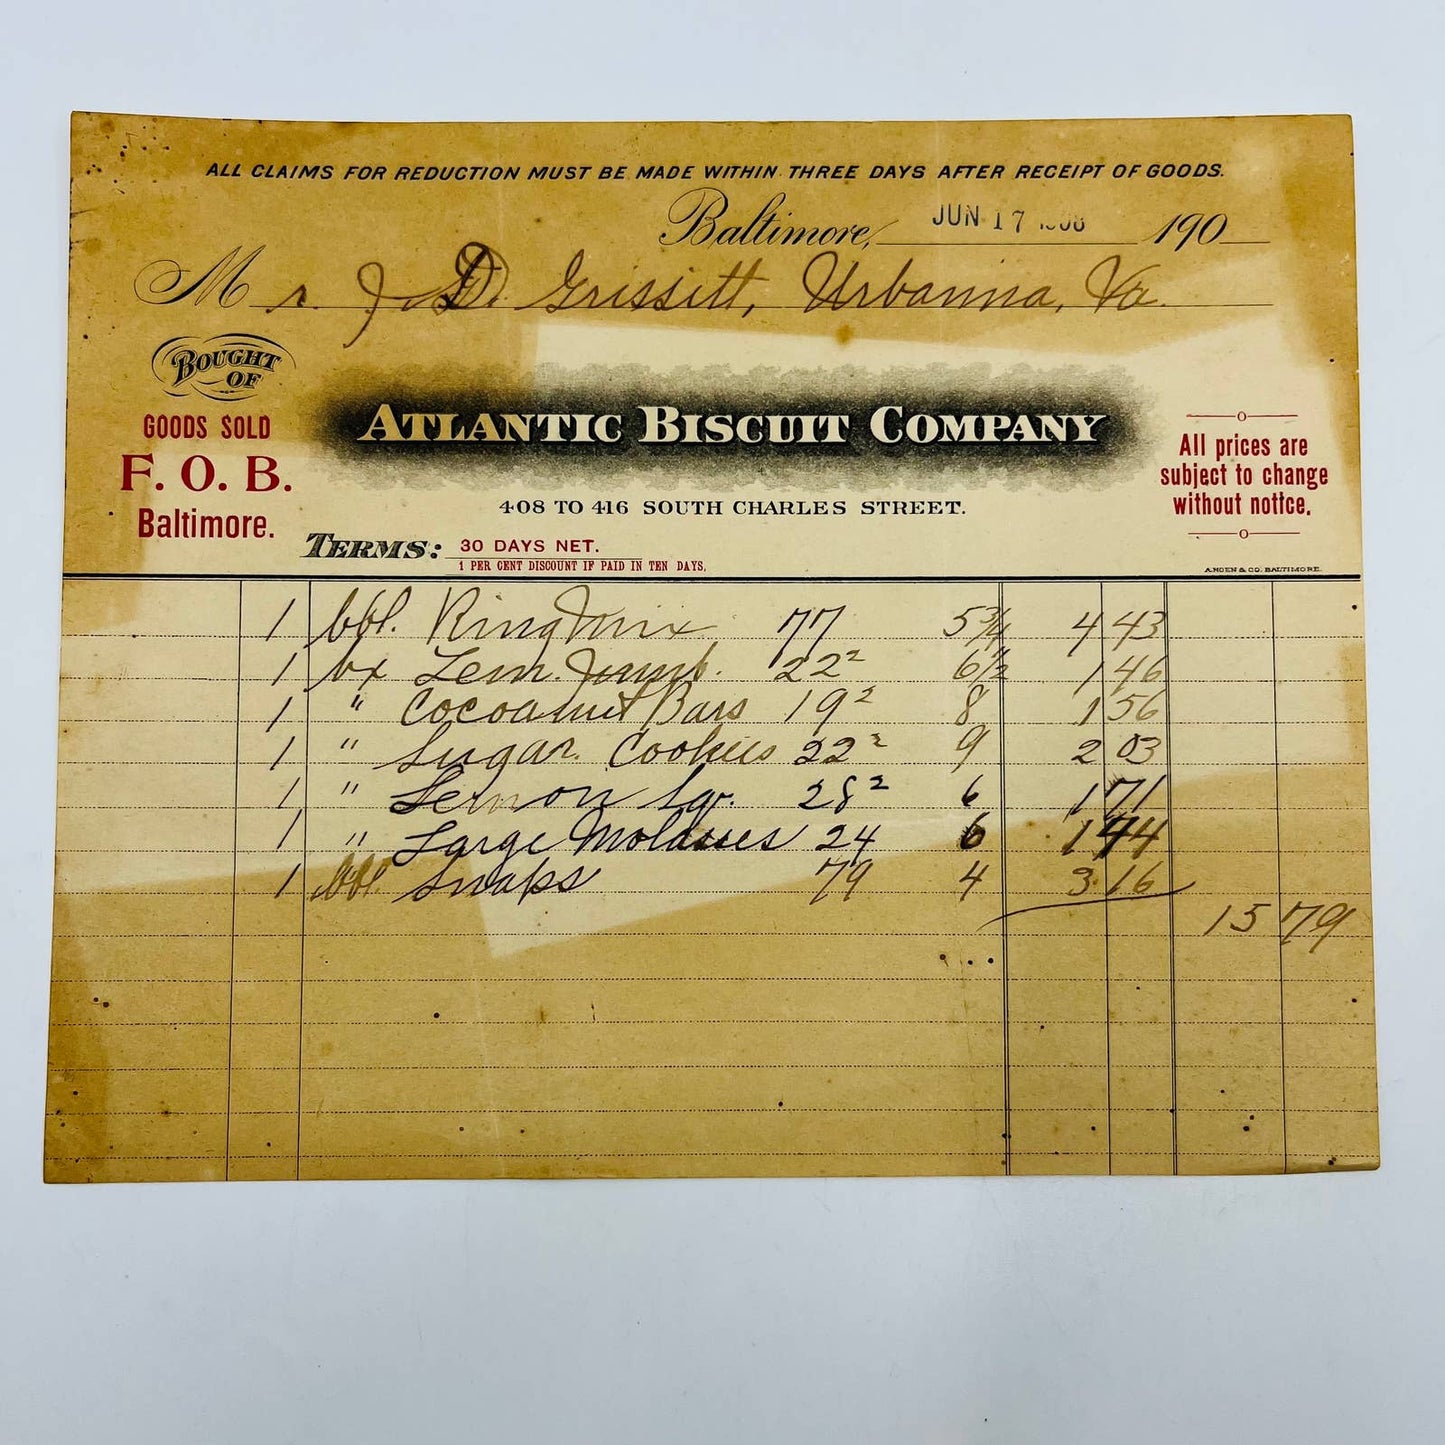 ALL CLAIMS FOR REDUCTION MUST BE MADE WITHIN THREE DAYS AFTER RECEIPT OF GOODS.
Baltimore, JUN 17 1908 190
Mr. J. D. Grissitt, Urbanna, Va.
BOUGHT OF
GOODS SOLD
F. O. B.
Baltimore.
ATLANTIC BISCUIT COMPANY
408 TO 416 SOUTH CHARLES STREET.
All prices are
subject to change
without notice.
TERMS: 30 DAYS NET.
1 PER CENT DISCOUNT IF PAID IN TEN DAYS,
A.HOEN & CO. BALTIMORE.
1 bbl. Ring Mix 77 5 3/4 4 43
1 bx Lem. Jumb. 22² 6 1/2 1 46
1 " Cocoanut Bars 19² 8 1 56
1 " Sugar Cookies 22² 9 2 03
1 " Lemon Sq. 28² 6 1 71
1 " Large Molasses 24 6 1 44
1 bbl. Snaps 79 4 3 16
15 79